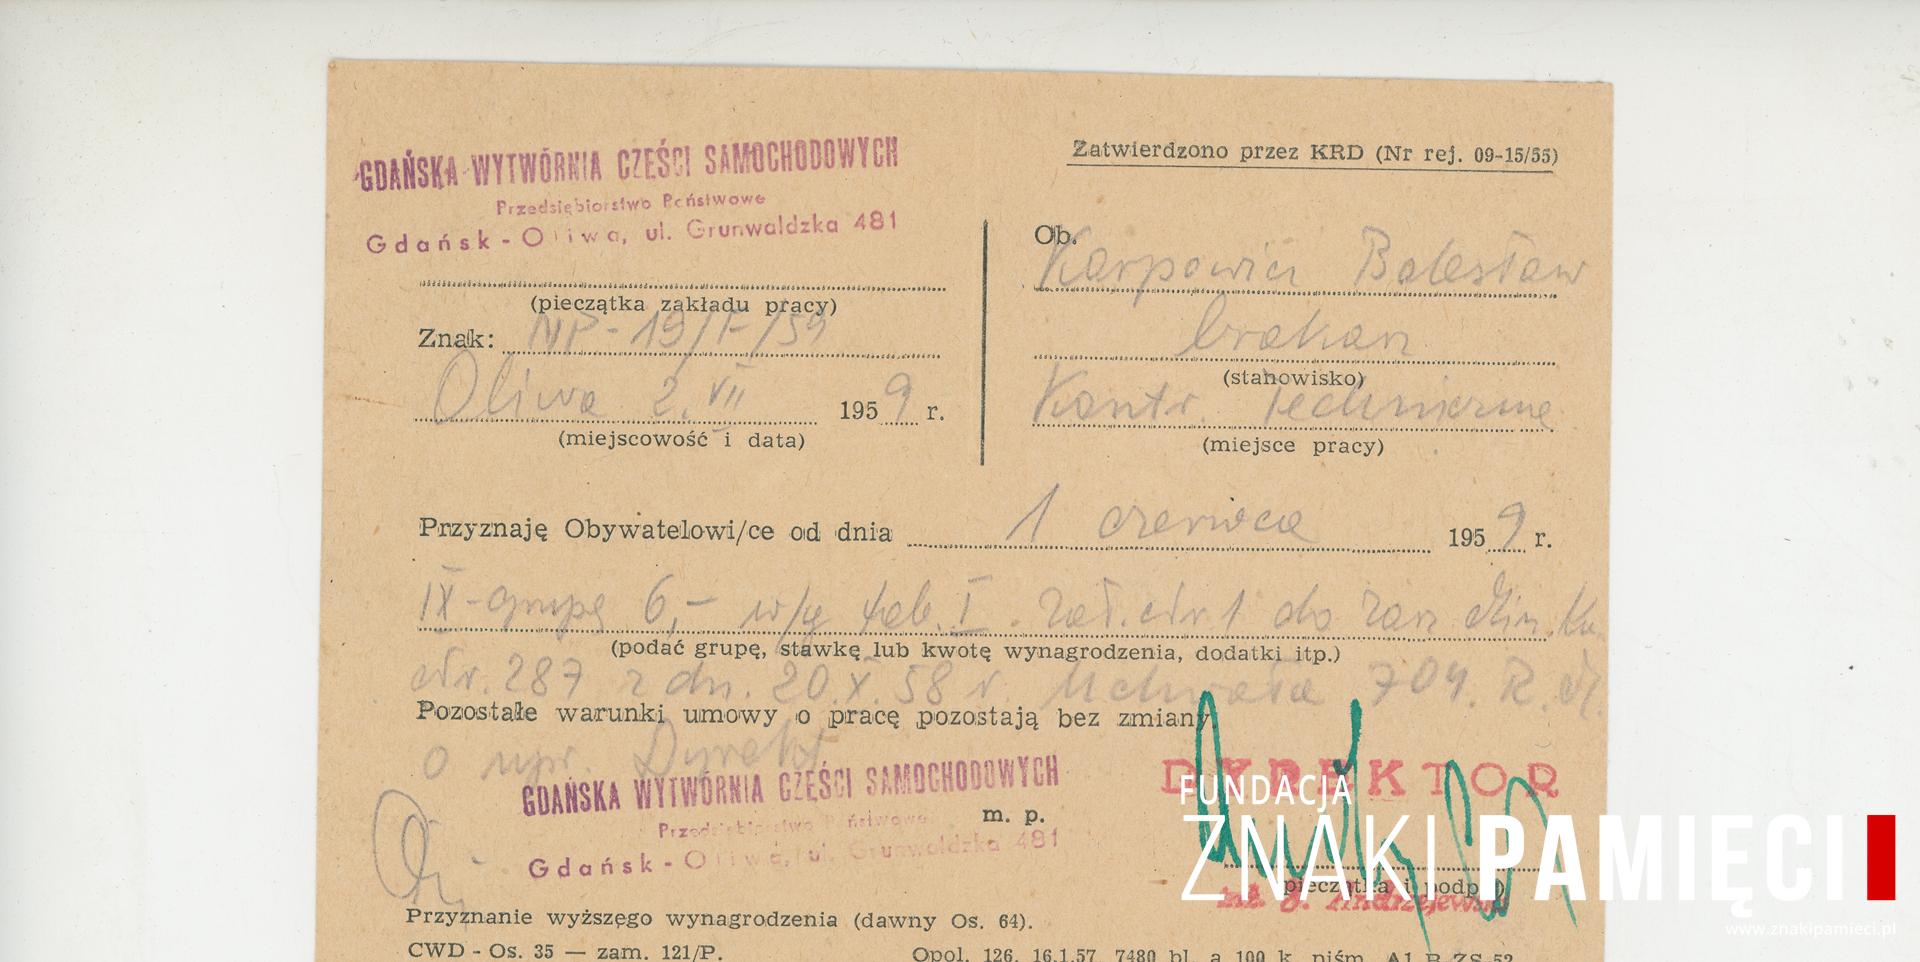 GDAŃSKA WYTWÓRNIA CZĘŚCI SAMOCHODOWYCH
Przedsiębiorstwo Państwowe
Gdańsk-Oliwa, ul. Grunwaldzka 481
(pieczątka zakładu pracy)
Znak: NP-19/F/59
Oliwa 2.VII 1959 r.
(miejscowość i data)
Zatwierdzono przez KRD (Nr rej. 09-15/55)
Ob.
Karpowicz Bolesław
brakarz
(stanowisko)
Kontr. Techniczne
(miejsce pracy)
Przyznaję Obywatelowi/ce od dnia 1 czerwca 1959 r.
IX-grupę 6,- w/g tab. I. zał. Nr 1 do zarz Min.
(podać grupę, stawkę lub kwotę wynagrodzenia, dodatki itp.)
Nr. 287 z dn. 20.X.58 r. Uchwała 704. R. M.
Pozostałe warunki umowy o pracę pozostają bez zmiany
o upr. Dyrekt.
GDAŃSKA WYTWÓRNIA CZĘŚCI SAMOCHODOWYCH
Przedsiębiorstwo Państwowe
m. p.
Gdańsk-Oliwa, ul. Grunwaldzka 481
DYREKTOR
(pieczątka i podpis)
inż J. Andrzejewski
Przyznanie wyższego wynagrodzenia (dawny Os. 64).
CWD - Os. 35 — zam. 121/P.
Opol. 126. 16.1.57. 7480 bl. a 100 k. piśm. A1 B ZS 52
FUNDACJA
ZNAKI PAMIĘCI
www.znakipamieci.pl